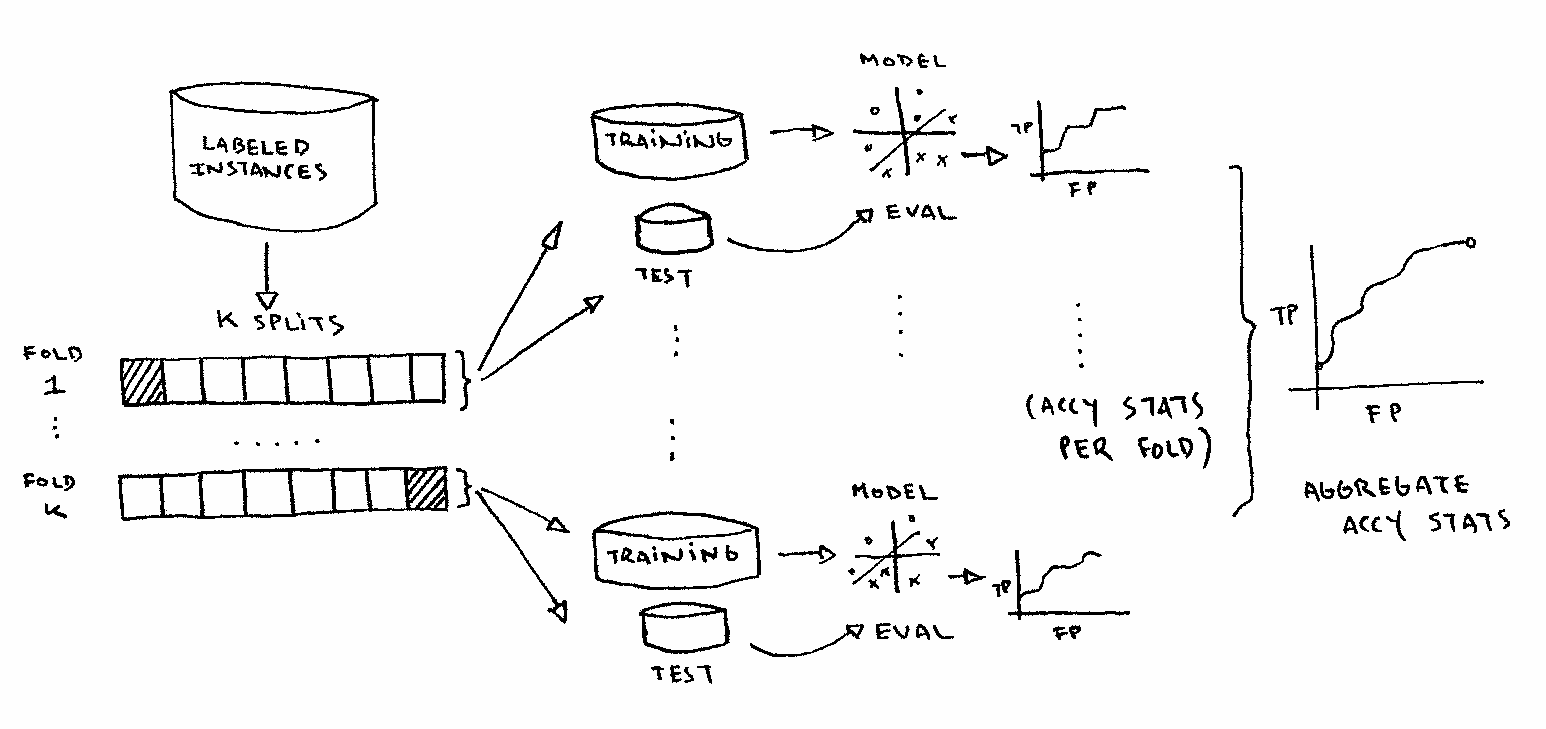 LABELED
INSTANCES
K SPLITS
FOLD
1
FOLD
K
TRAINING
TEST
MODEL
EVAL
TP
FP
(ACCY STATS
PER FOLD)
TRAINING
TEST
MODEL
EVAL
TP
FP
TP
FP
AGGREGATE
ACCY STATS